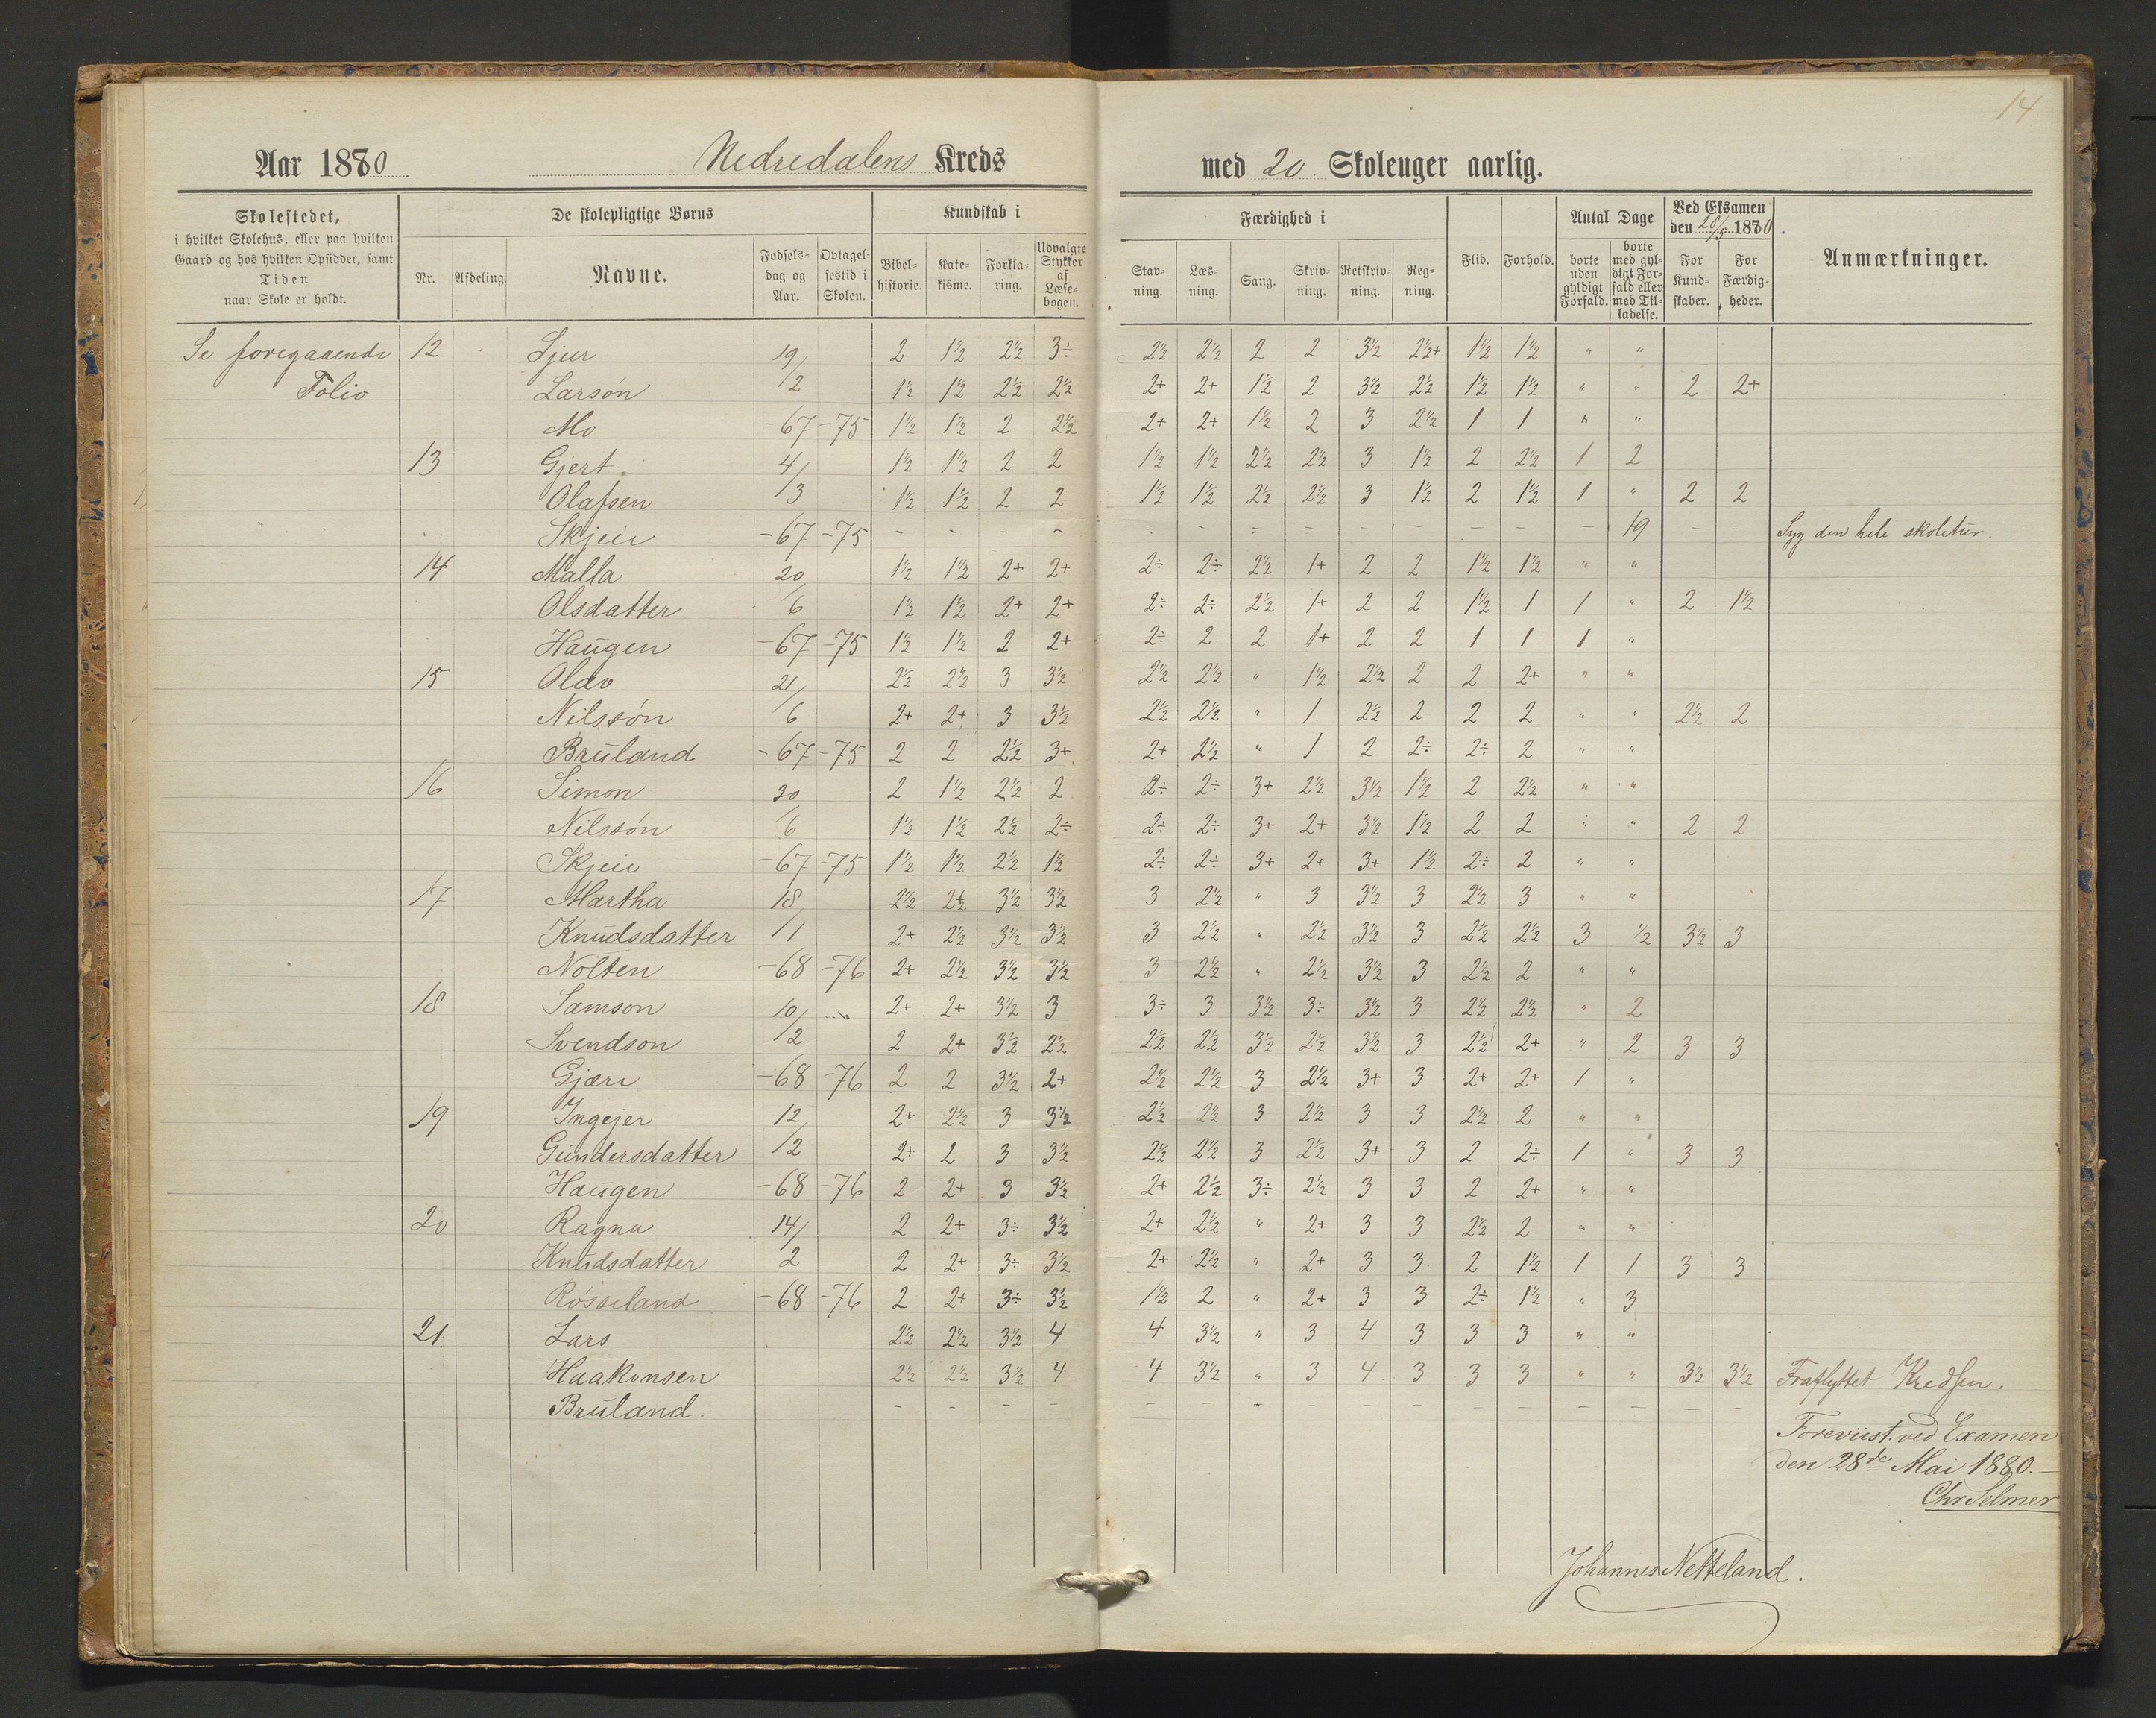 14
Aar 1880 Nedredalens Kreds med 20 Skolenger aarlig.
Skolestedet, i hvilket Skolehus, eller paa hvilken Gaard og hos hvilken Opsidder, samt Tiden naar Skole er holdt.
De skolepligtige Børns
Nr. Afdeling. Navne. Fødsels-dag og Aar. Optagel-sestid i Skolen.
Kundskab i
Bibel-historie. Kate-kisme. Forkla-ring. Udvalgte Stykker af Læse-bogen.
Færdighed i
Stav-ning. Læs-ning. Sang. Skriv-ning. Retskriv-ning. Reg-ning.
Flid. Forhold.
Antal Dage
borte uden gyldigt Forfald. borte med gyl-digt For-fald eller med Til-ladelse.
Ved Eksamen den 28/5 1880.
For Kund-skaber. For Færdig-heder.
Anmærkninger.
Se foregaaende 12 Sjur 19/ 2 1½ 2½ 3÷ 2½ 2½ 2 2 3½ 2½+ 1½ 1½ " "
Folio Larsøn /2 1½ 1½ 2½ 2½ 2+ 2+ 1½ 2 3½ 2½ 1½ 1½ " " 2 2+
Mo -67 -75 1½ 1½ 2 2½ 2+ 2+ 1½ 2 3 2½ 1 1 " "
13 Gjert 4/ 1½ 1½ 2 2 1½ 1½ 2½ 2½ 3 1½ 2 2½ 1 2
Olafsen /3 1½ 1½ 2 2 1½ 1½ 2½ 2½ 3 1½ 2 1½ 1 " 2 2
Skjeie -67 -75 - - - - - - - - - - - - - 19 - - Syg den hele skoletur.
14 Malla 20/ 1½ 1½ 2+ 2+ 2÷ 2÷ 2½ 1+ 2 2 1½ 1½ " "
Olsdatter 6 1½ 1½ 2+ 2+ 2÷ 2÷ 2½ 1+ 2 2 1½ 1 1 " 2 1½
Haugen -67 -75 1½ 1½ 2 2+ 2÷ 2 2 1+ 2 2 1 1 1 "
15 Olav 21/ 2½ 2½ 3 3½ 2½ 2½ " 1½ 2½ 2 2 2+ " "
Nilssøn 6 2+ 2+ 3 3½ 2½ 2½ " 1 2½ 2 2 2 " " 2½ 2
Bruland -67 -75 2 2 2½ 3+ 2+ 2½ " 1 2 2÷ 2÷ 2 " "
16 Simon 30/ 2 1½ 2½ 2 2÷ 2÷ 3+ 2½ 3½ 1½ 2 2½ " "
Nilssøn 6 1½ 1½ 2½ 2÷ 2÷ 2÷ 3+ 2+ 3½ 1½ 2 2 " " 2 2
Skjeie -67 -75 1½ 1½ 2½ 1½ 2÷ 2÷ 3+ 2+ 3+ 1½ 2÷ 2 " "
17 Martha 18/ 2½ 2½ 3½ 3½ 3 2½ " 3 3½ 3 2½ 3 " "
Knudsdatter 11 2+ 2½ 3½ 3½ 3 2½ " 2½ 3½ 3 2½ 2½ 3 ½ 3½ 3
Nolten -68 -76 2+ 2½ 3½ 3½ 3 2½ " 2½ 3½ 3 2½ 2 " "
18 Samson 10/ 2+ 2+ 3½ 3 3÷ 3 3½ 3÷ 3½ 3 2½ 2½ " 2
Svendson /2 2 2+ 3½ 2½ 2½ 2½ 3½ 2½ 3½ 3 2½ 2+ " 2 3 3
Gjære -68 -76 2 2 3½ 2+ 2½ 2½ 3 2½ 3+ 3 2+ 2+ 1 "
19 Ingejer 12/ 2+ 2½ 3 3½ 2½ 2½ 3 2½ 3 3 2½ 2 " "
Gundersdatter /2 2+ 2 3 3½ 2½ 2½ 3 2½ 3+ 3 2 2÷ 1 " 3 3
Haugen -68 -76 2 2+ 3 3½ 2+ 2½ 3÷ 2½ 3 3 2 2+ " "
20 Ragna 14/ 2 2+ 3÷ 3½ 2+ 2½ " 2+ 3 3 2½ 2 " "
Knudsdatter 2 2 2+ 3÷ 3½ 2+ 2½ " 2+ 3 3 2 1½ 1 1 3 3
Røsseland -68 -76 2 2+ 3÷ 3½ 1½ 2 " 2+ 3 3 2÷ 1½ " 3
21. Lars 2½ 2½ 3½ 4 4 3½ " 3 4 3 3 3 " "
Haakonsen 2½ 2½ 3½ 4 4 3½ " 3 4 3 3 3 " " 3½ 3½ Fraflyttet Kredsen.
Bruland. - - - - - - - - - - - - - - - -
Foreviist ved Examen
den 28de Mai 1880.-
Chr Selmer
Johannes Netteland.